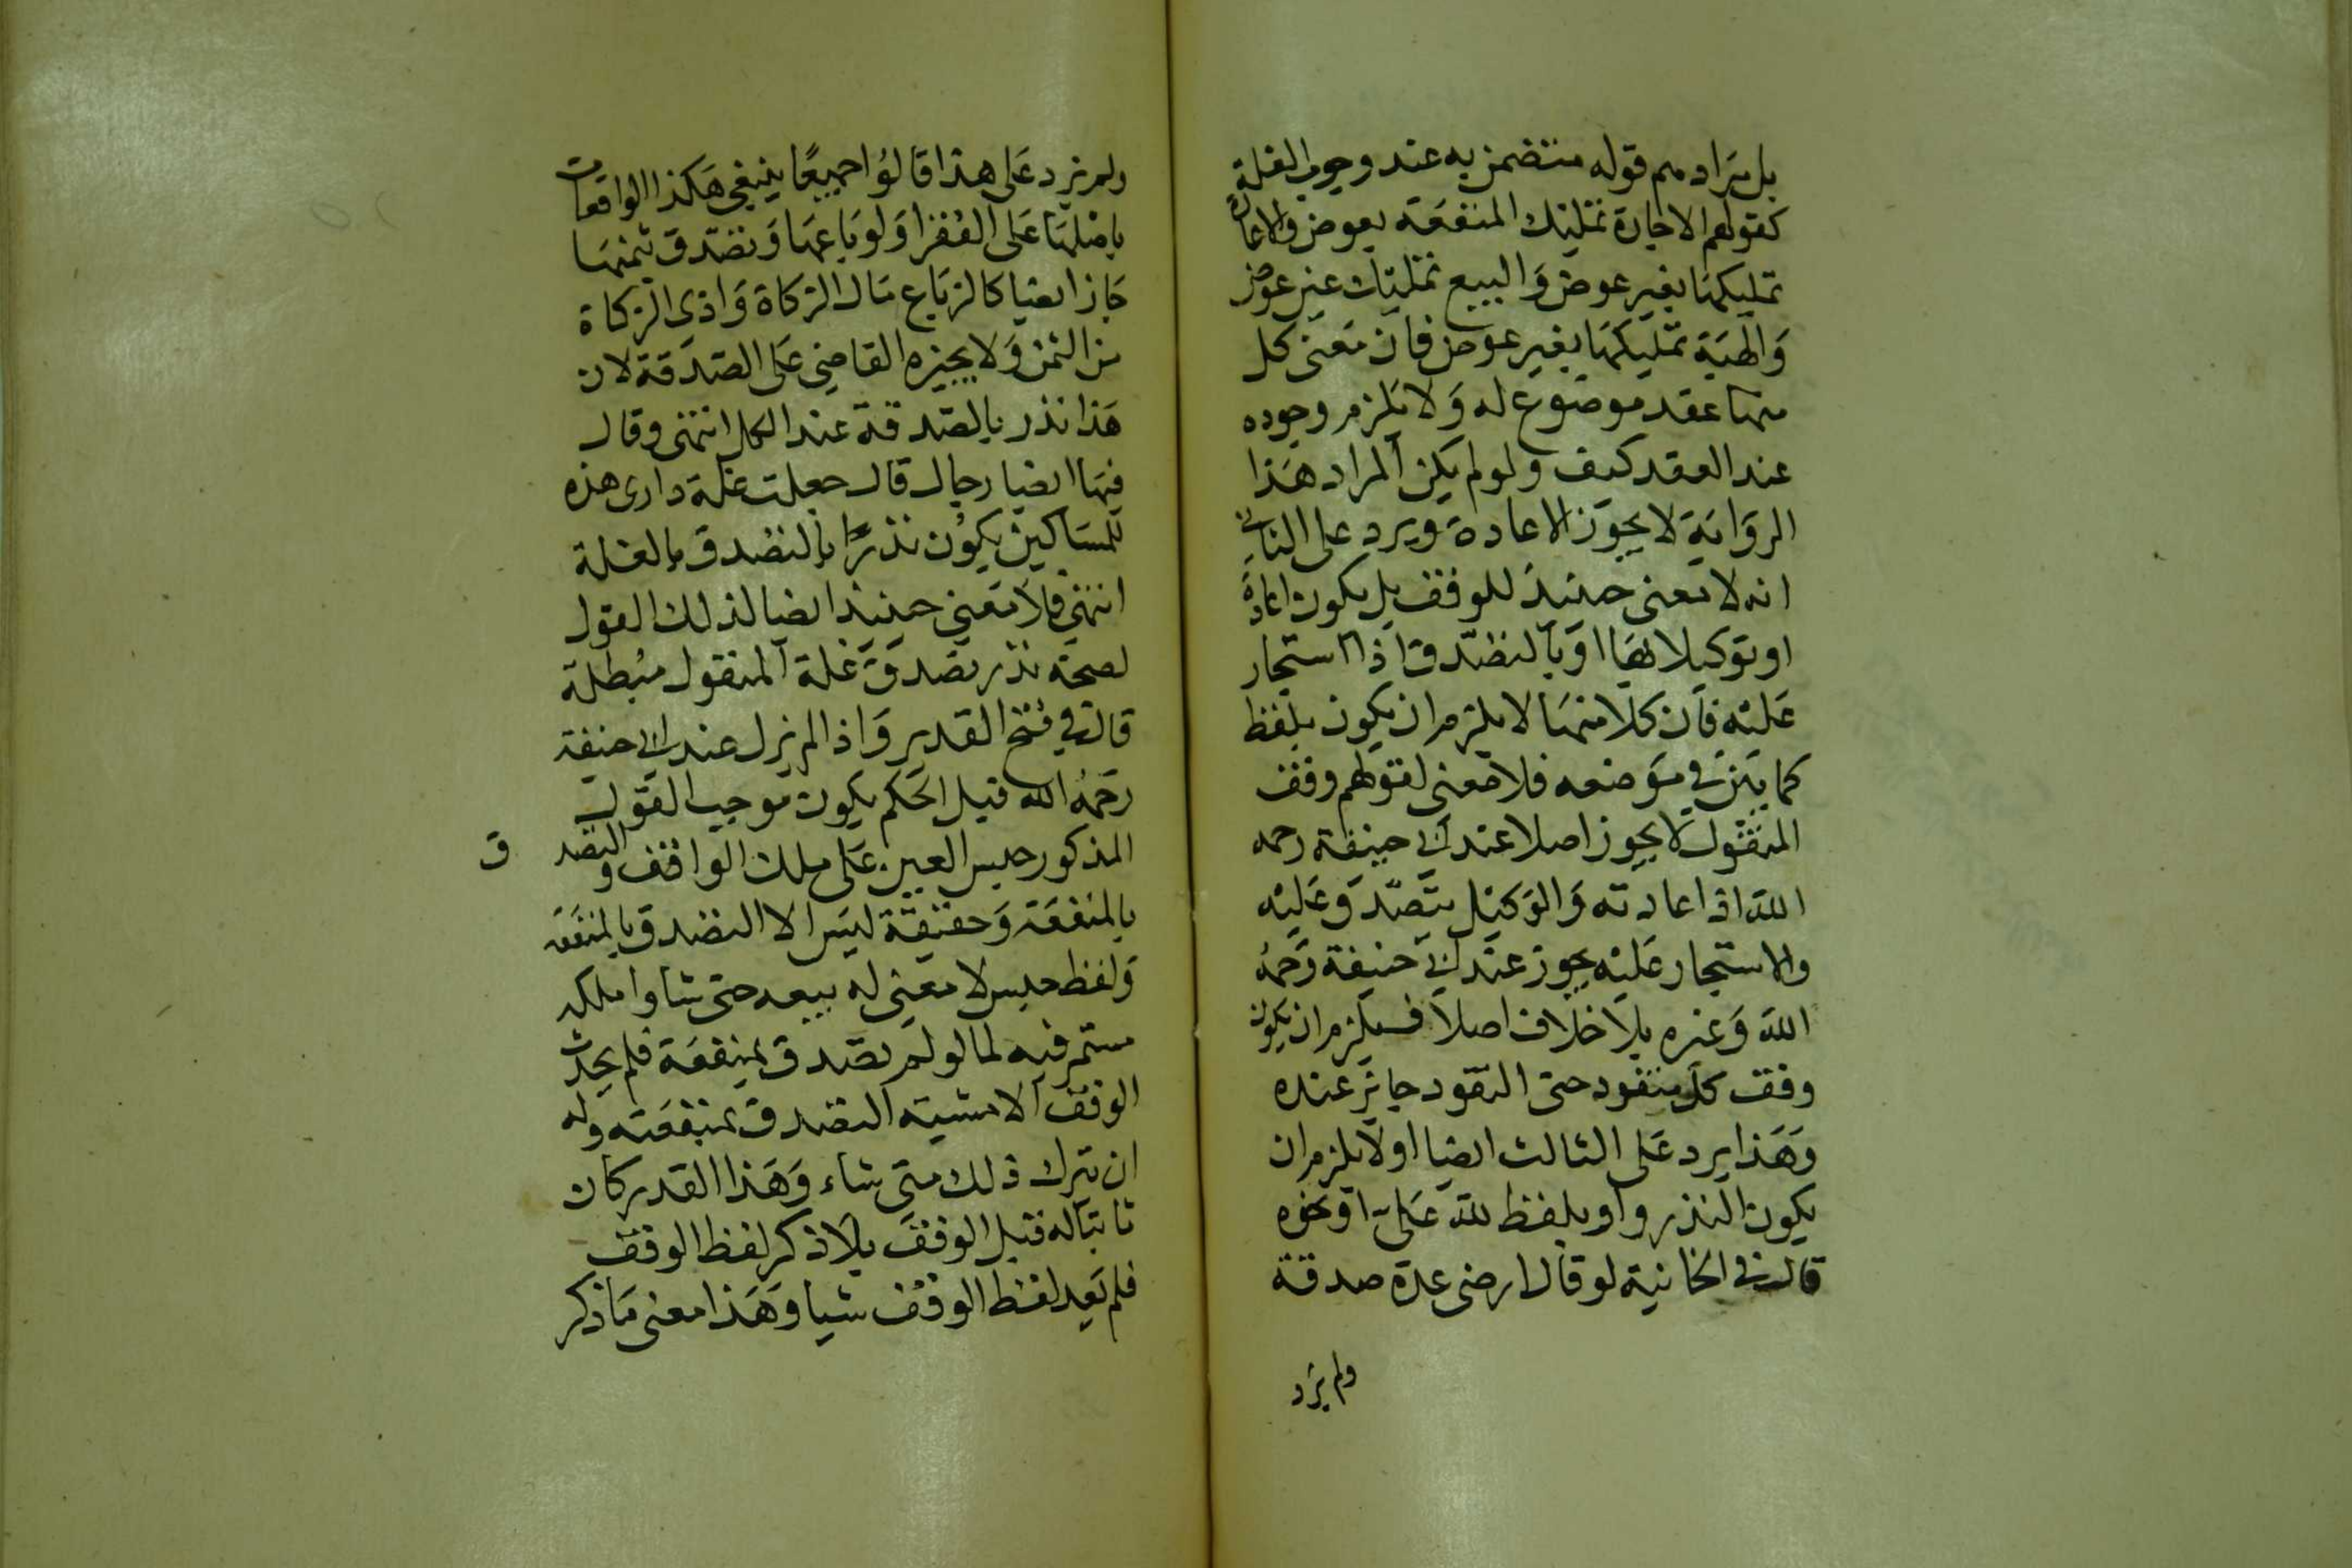 بل يراد مم قوله متضمن به عند وجوب الغلة
كقولهم الاجارة تمليك المنفعة بعوض والاعارة
تمليكها بغير عوض والبيع تمليك عين عوض
والهبة تمليكها بغير عوض فان معنى كل
منها عقد موضوع له ولا يلزم وجوده
عند العقد كيف ولو لم يكن المراد هذا
الرواية لا يجوز الاعادة ويرد على الثاني
انه لا معنى حينيذ للوقف بل يكون اعادة
او توكيلا لها او بالتصدق اذ استجار
عليه فان كلا منهما لا يلزم ان يكون بلفظ
كما بين في موضعه فلا معنى لقولهم وقف
المنقول لا يجوز اصلا عند ابي حنيفة رحمه
الله اذ اعادته والوكيل يتصدق عليه
والاستجار عليه يجوز عند ابي حنيفة رحمه
الله وغيره بلا خلاف اصلا فيلزم ان يكون
وقف كل منقود حتى النقود جايز عنده
وهذا يرد على الثالث ايضا اولا يلزم ان
يكون النذر واو بلفظ لله علي او نحوه
قال في الخانية لو قال ارضي عدة صدقة
ولم يزد
ولم يزد على هذا قالوا جميعا ينبغي هكذا الواقعات
بامثلها على الفقرا ولو باعها وتصدق بثمنها
جاز ايضا كالزباع مال الزكاة وادى الزكاة
من الثمن ولا يجيزه القاضي على الصدقة لان
هذا نذر بالصدقة عند الكل انتهى وقال
فيها ايضا رجال قال جعلت غلة داري هذه
للمساكين يكون نذرا بالتصدق بالغلة
انتهى فلا معنى حينيذ ايضا لذلك القول
لصحة نذر تصدق غلة المنقول مبطلة
قال في فتح القدير واذا لم يزل عند ابي حنيفة
رحمه الله قبل الحكم يكون موجب القول
المذكور حبس العين على ملك الواقف والتصدق
بالمنفعة وحقيقة ليس الا التصدق بالمنفعة
ولفظ حبس لا معنى له ببيعه حتى شا وا ملكه
مستمر فيه لما لو لم تصدق بمنفعة فلم يحدث
الوقف الا مشية التصدق بمنفعته وله
ان يترك ذلك متى شاء وهذا القدر كان
ثابتا له قبل الوقف بلا ذكر لفظ الوقف
فلم يعد لفظ الوقف شيا وهذا معنى ما ذكر